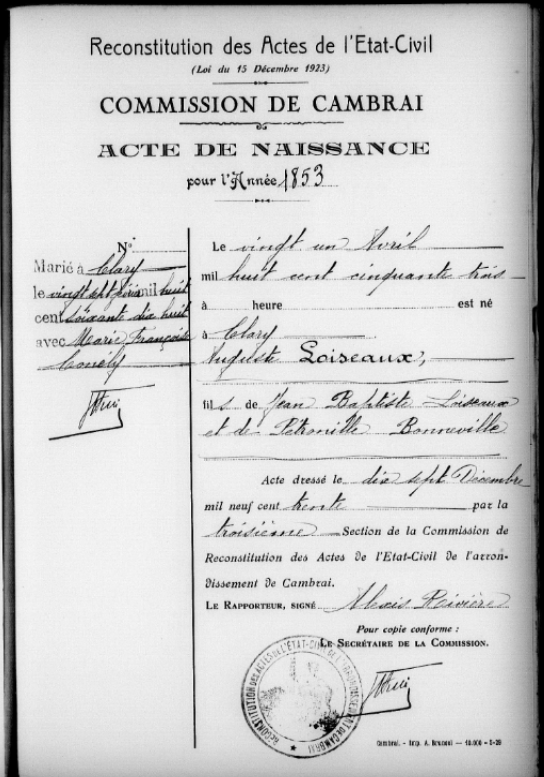 Reconstitution des Actes de l'Etat-Civil
(Loi du 15 Décembre 1923)
COMMISSION DE CAMBRAI
ACTE DE NAISSANCE
pour l'Année 1853
N°
Marié à Clary
le vingt sept juin mil huit
cent soixante dix huit
avec Marie Françoise
Le vingt un Avril
mil huit cent cinquante trois
à heure est né
à Clary
Auguste Loiseaux,
fils de Jean Baptiste Loiseaux
et de Pétronille Bonneville
Acte dressé le dix sept Décembre
mil neuf cent trente par la
troisième Section de la Commission de
Reconstitution des Actes de l'Etat-Civil de l'arron-
dissement de Cambrai.
LE RAPPORTEUR, SIGNÉ Alexis Rivière
Pour copie conforme :
LE SECRÉTAIRE DE LA COMMISSION.
RECONSTITUTION DES ACTES DE L'ÉTAT-CIVIL DE L'ARRONDISSEMENT DE CAMBRAI
Cambrai. - Imp. A. 10.000 - 5-29